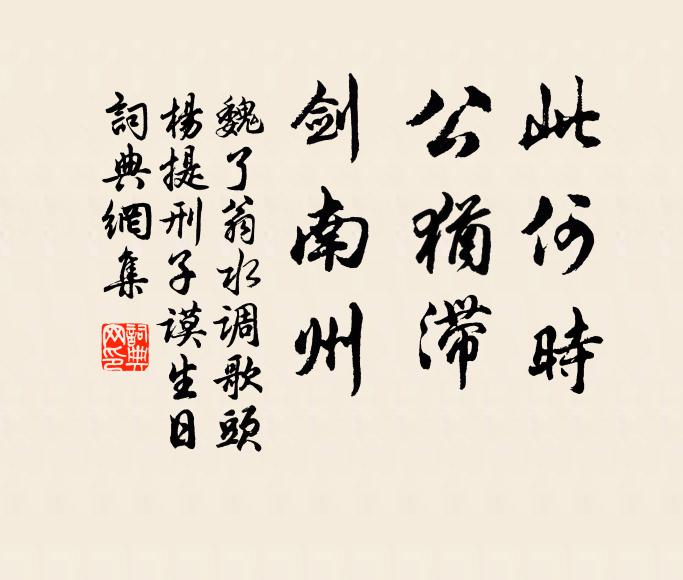 此何時
公猶滯
劍南州
魏了翁水调歌頭
楊提刑子谟生日
詞典網集
詞典網印